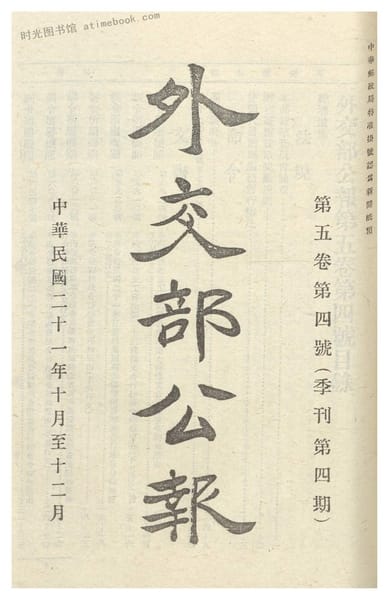 时光图书馆 · atimebook.com
中華郵政局特准掛號認爲新聞紙類
第五卷第四號(季刊第四期)
外交部公報
中華民國二十一年十月至十二月